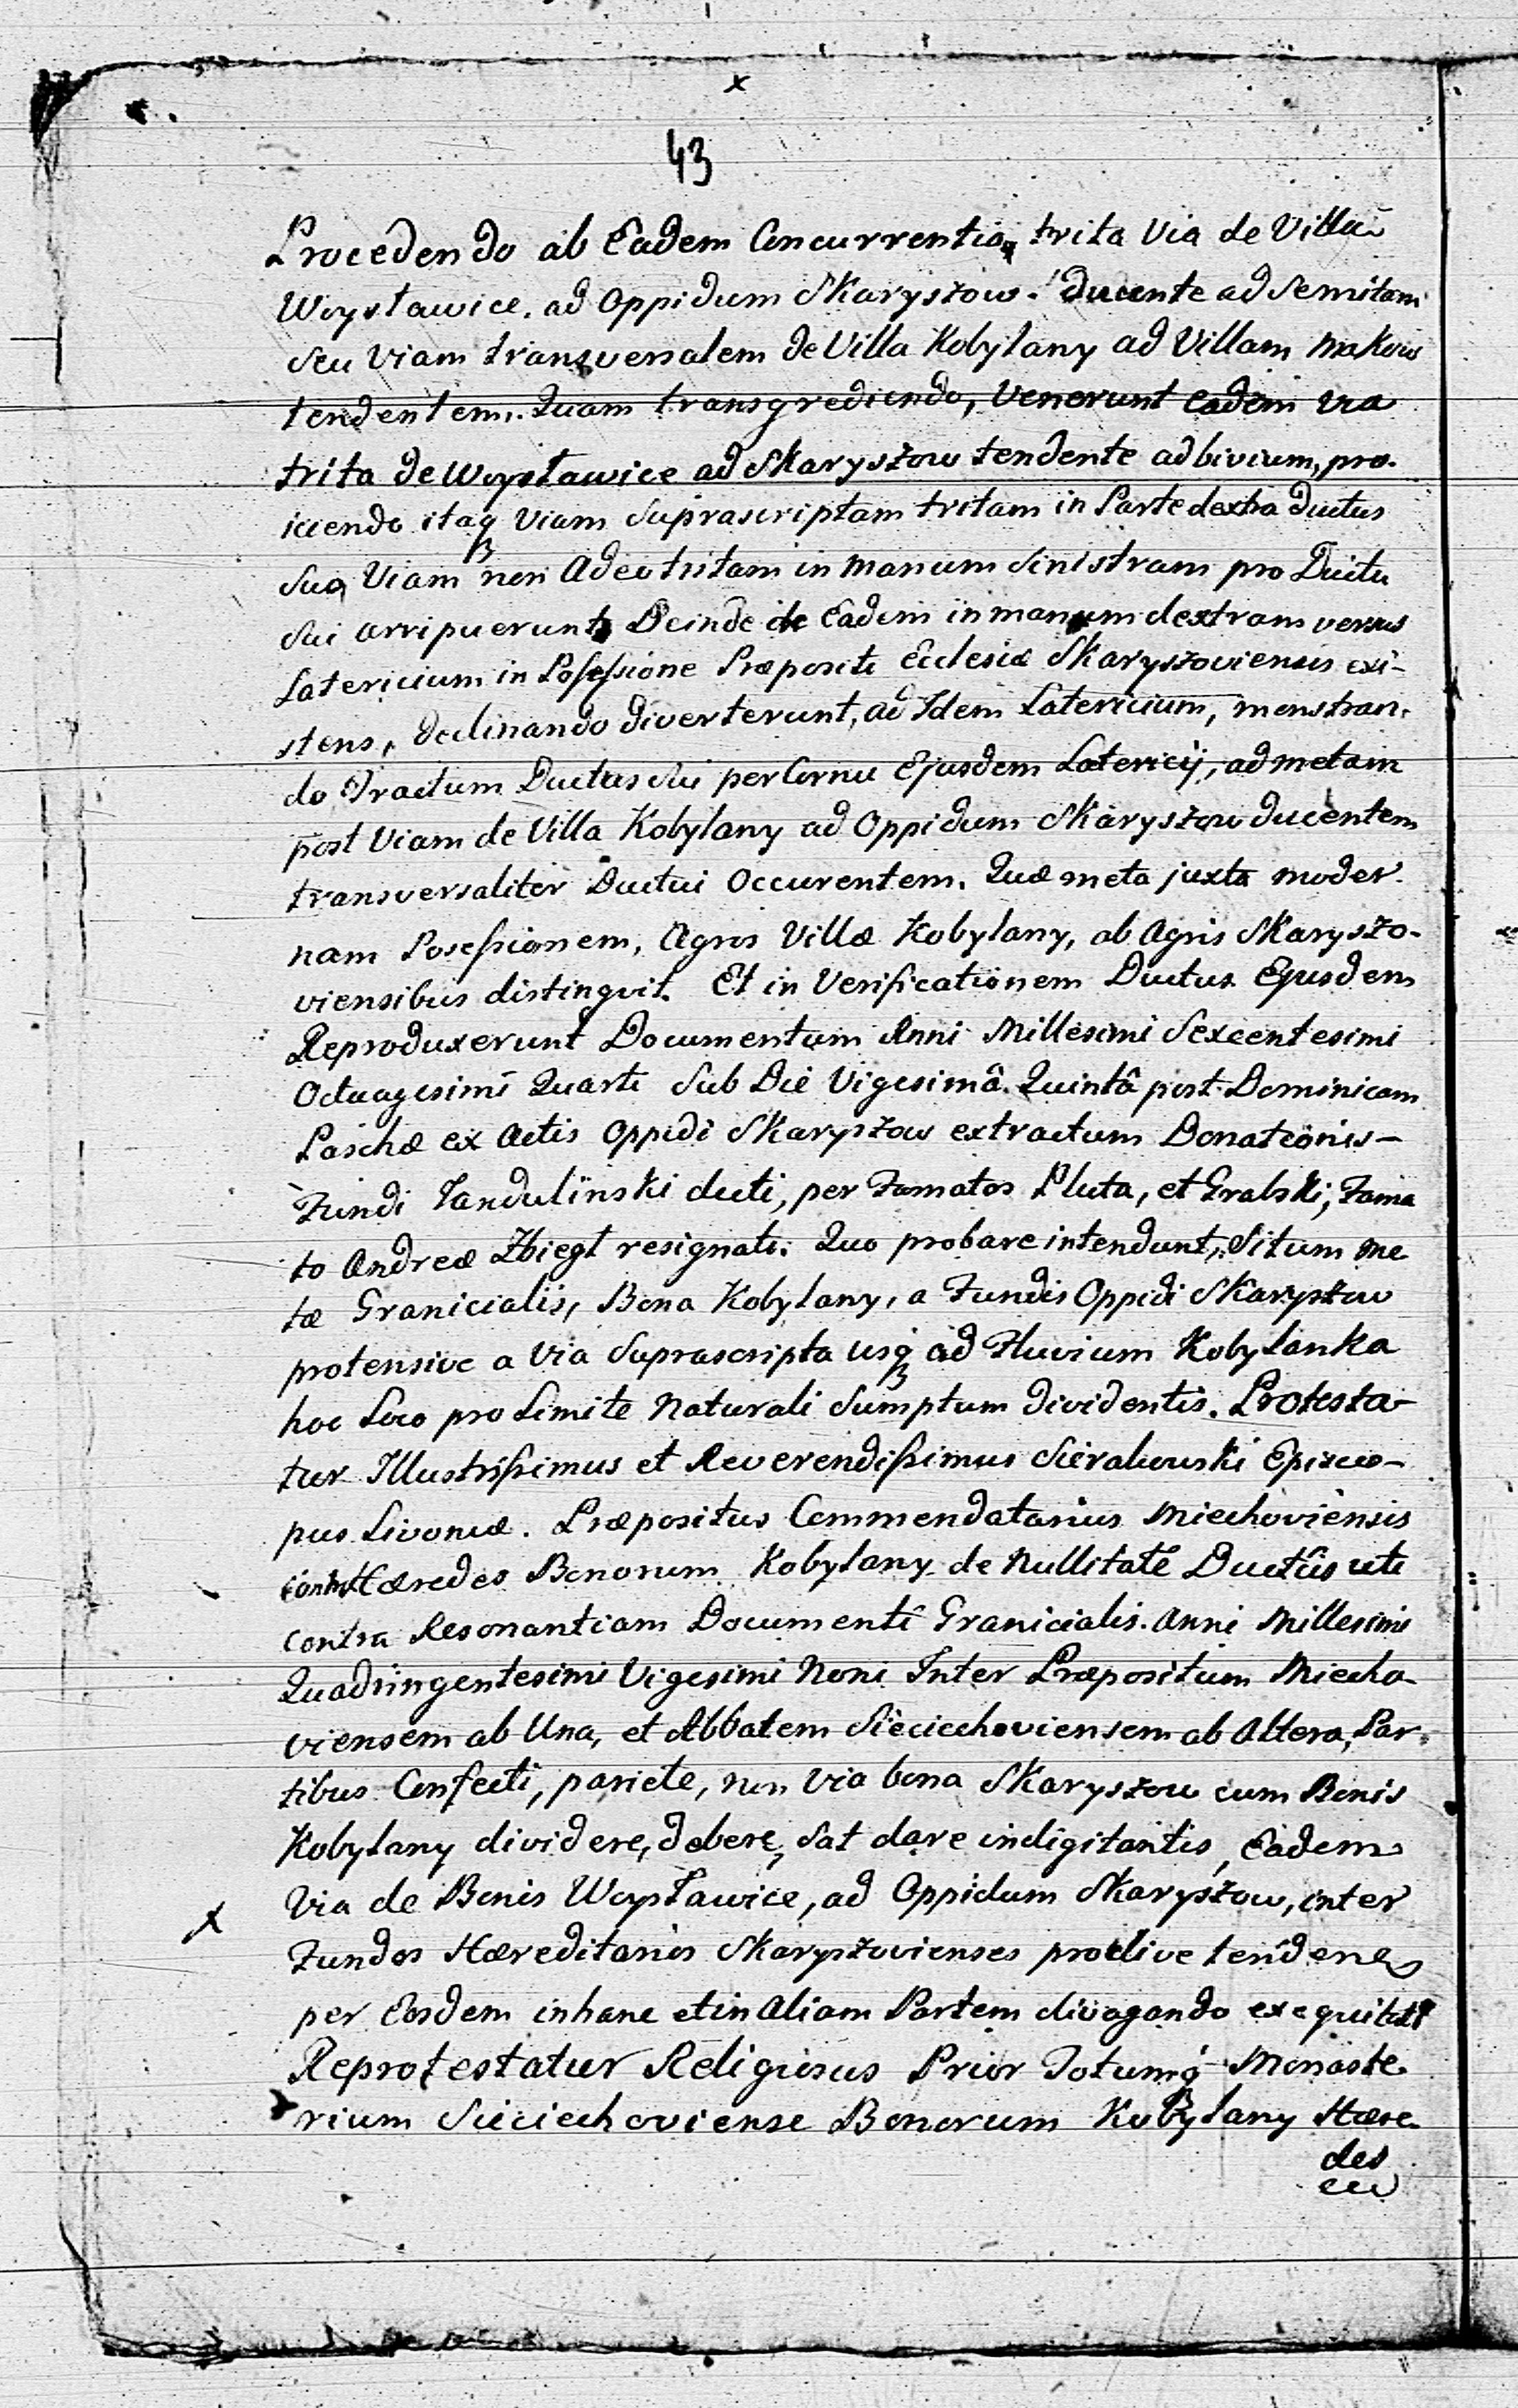 x
43
Procedendo ab Eadem Concurrentia, trita Via de Villa
Woysławice, ad Oppidum Skaryszow. ducente ad Semitam
seu Viam transversalem de Villa Kobylany ad Villam Makow
tendentem. Quam transgrediendo, venerunt eadem via
trita de Woysławice ad Skaryszow tendente ad bivium, pro-
iiciendo itaq Viam Suprascriptam tritam in Parte dextra Ductus
sua, Viam non Adeo tritam in manum Sinistram pro Ductu
sui arripuerunt, Deinde de Eadem in manum dextram versus
Latericium in Possessione Præpositi Ecclesiæ Skaryszoviensis exi-
stens, declinando diverterunt, ad Idem Latericium, monstran-
do Tractum Ductus sui per Cornu Ejusdem Latericij, ad metam
post Viam de Villa Kobylany ad Oppidum Skaryszow ducentem
transversaliter Ductui Occurentem. Quæ meta juxta moder-
nam Posessionem, Agros Villæ Kobylany, ab Agris Skaryszo-
viensibus distinguit. Et in Verificationem Ductus Ejusdem
Reproduxerunt Documentum Anni Millesimi Sexcentesimi
Octuagesimi Quarti Sub Die Vigesimâ Quintâ post Dominicam
Paschæ ex Actis Oppidi Skaryszow extractum Donationis -
Fundi Tandulinski dicti, per Famatos Pluta, et Grabski, Fama
to Andreæ Zbiegt resignati. Quo probare intendunt, Situm me
tæ Granicialis, Bona Kobylany, a Fundis Oppidi Skaryszow
protensive a Via Suprascripta usq ad Fluvium Kobylanka
hoc Loco pro Limite Naturali Sumptum dividentis. Protesta-
tur Illustrissimus et Reverendissimus Sierakowski Episco-
pus Livoniæ. Præpositus Commendatarius Miechoviensis
contra Hæredes Bonorum Kobylany de Nullitate Ductûs uti
contra Resonantiam Documenti Granicialis. Anni Millesimi
Quadringentesimi Vigesimi Noni Inter Præpositum Miecho-
viensem ab Una, et Abbatem Sieciechoviensem ab Altera, Par-
tibus Confecti, pariete, non via bona Skaryszow cum Bonis
Kobylany dividere, debere, sat clare indigitantis, Eadem
x Via de Bonis Woysławice, ad Oppidum Skaryszow, inter
Fundos Hæreditarios Skaryszovienses proclive tendens
per Eosdem in hanc et in Aliam Partem divagando exequitati
Reprotestatur Religiosus Prior Totumq Monaste-
rium Sieciechoviense Bonorum Kobylany Hære-
des